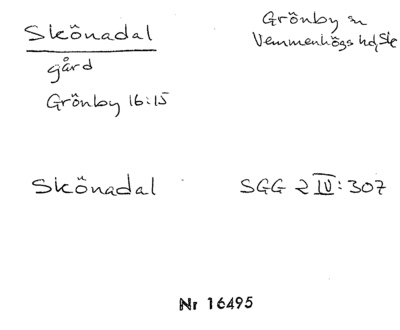 Skönadal
gård
Grönby 16:15
Grönby sn
Vemmenhögs hd, Sk
Skönadal
SGG 2 IV: 307
Nr 16495